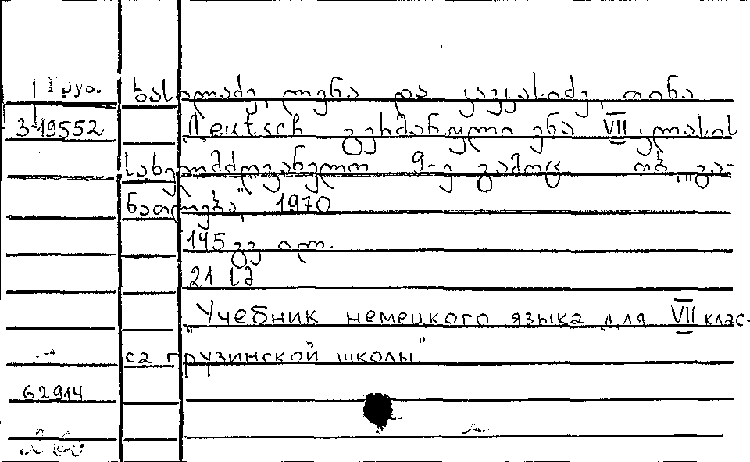 Груз. ხასილაძე, ლენა და კავკასიძე, თინა
3-19552 Deutsch გერმანული ენა VII კლასის
სახელმძღვანელო 9-ე გამოც თბ „გა-
ნათლება", 1970
145 გვ ილ.
21 სმ
"Учебник немецкого языка для VII клас-
са грузинской школы"
62914